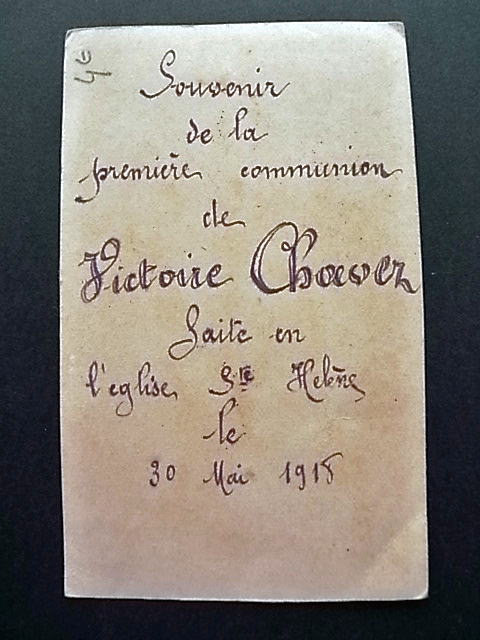 4e
Souvenir
de la
première communion
de
Victoire Chavez
Faite en
l'eglise Ste Helène
le
30 Mai 1918